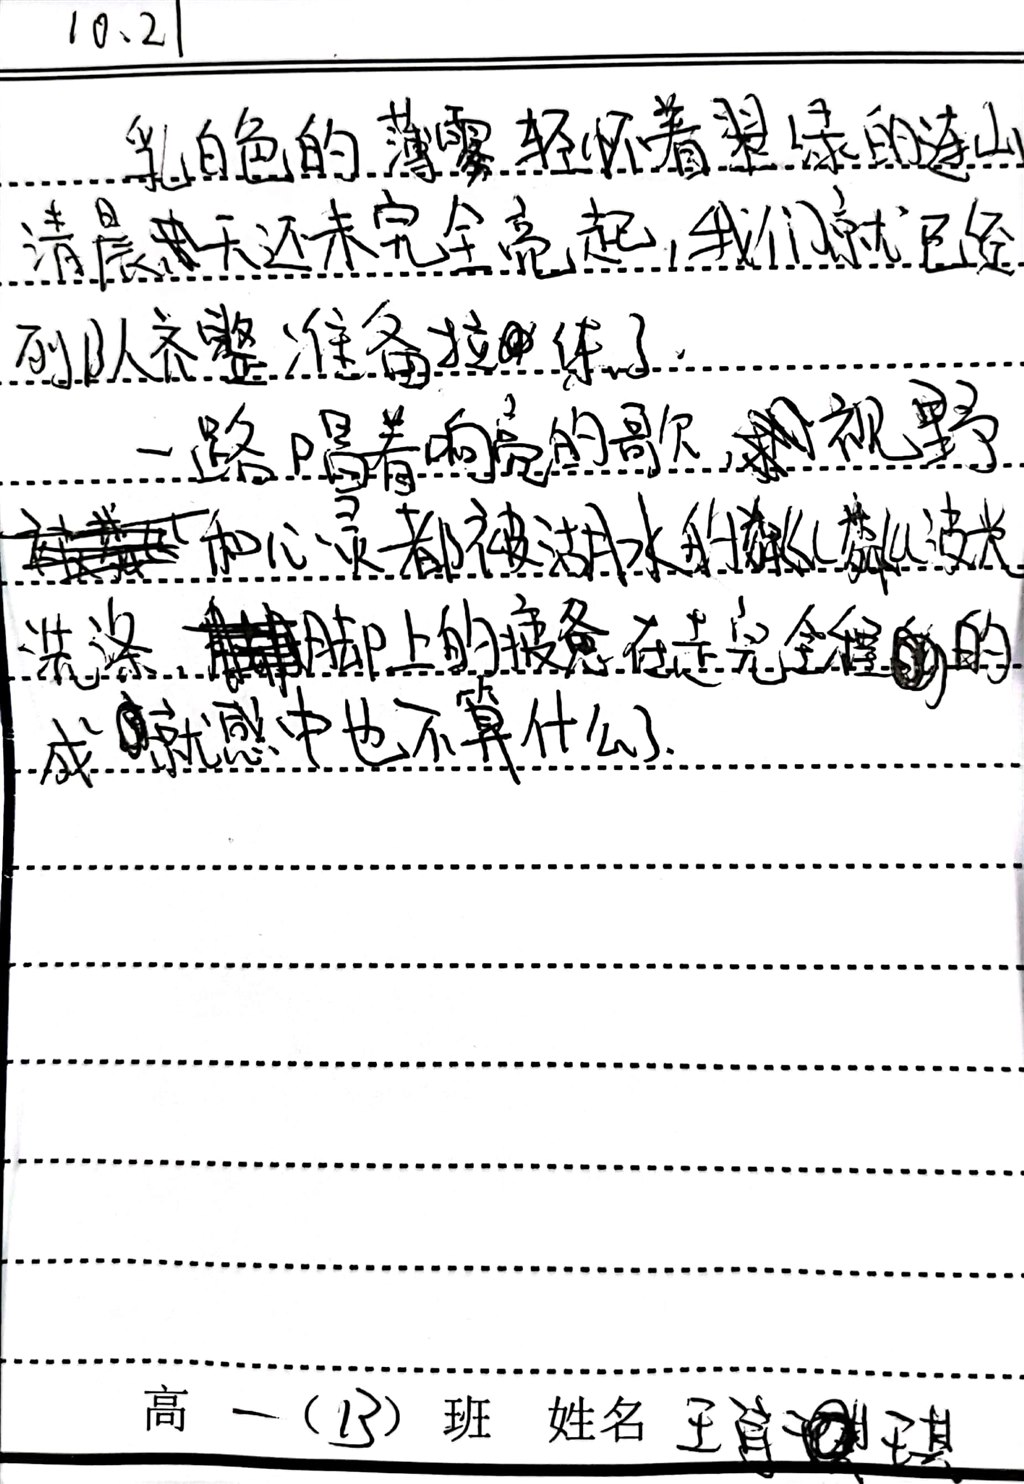 10.21
乳白色的薄雾轻怀着翠绿的连山
清晨天还未完全亮起,我们就已经
列队齐整准备拉练了.
一路唱着响亮的歌,视野
和心灵都被湖水的粼粼波光
洗涤.脚上的疲惫在走完全程的
成就感中也不算什么了.
高一(13)班 姓名 王肖琪